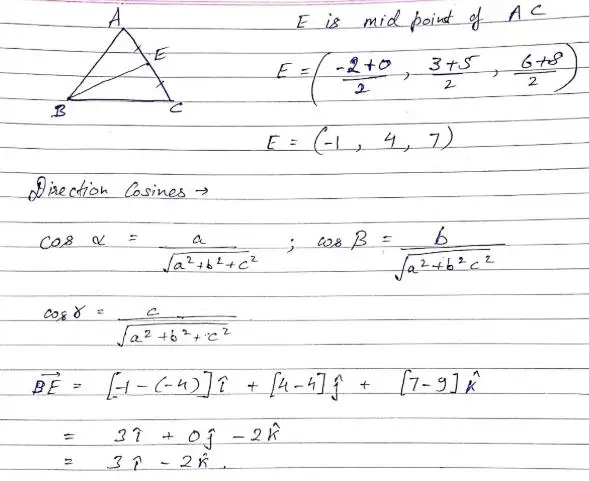 A
E
B
C
E is mid point of AC
E = (-2+0/2, 3+5/2, 6+8/2)
E = (-1, 4, 7)
Direction Cosines →
cos α = a/√a²+b²+c² ; cos β = b/√a²+b²c²
cos γ = c/√a²+b²+c²
B⃗E⃗ = [-1-(-4)]î + [4-4]ĵ + [7-9]k̂
= 3î + 0ĵ - 2k̂
= 3î - 2k̂.